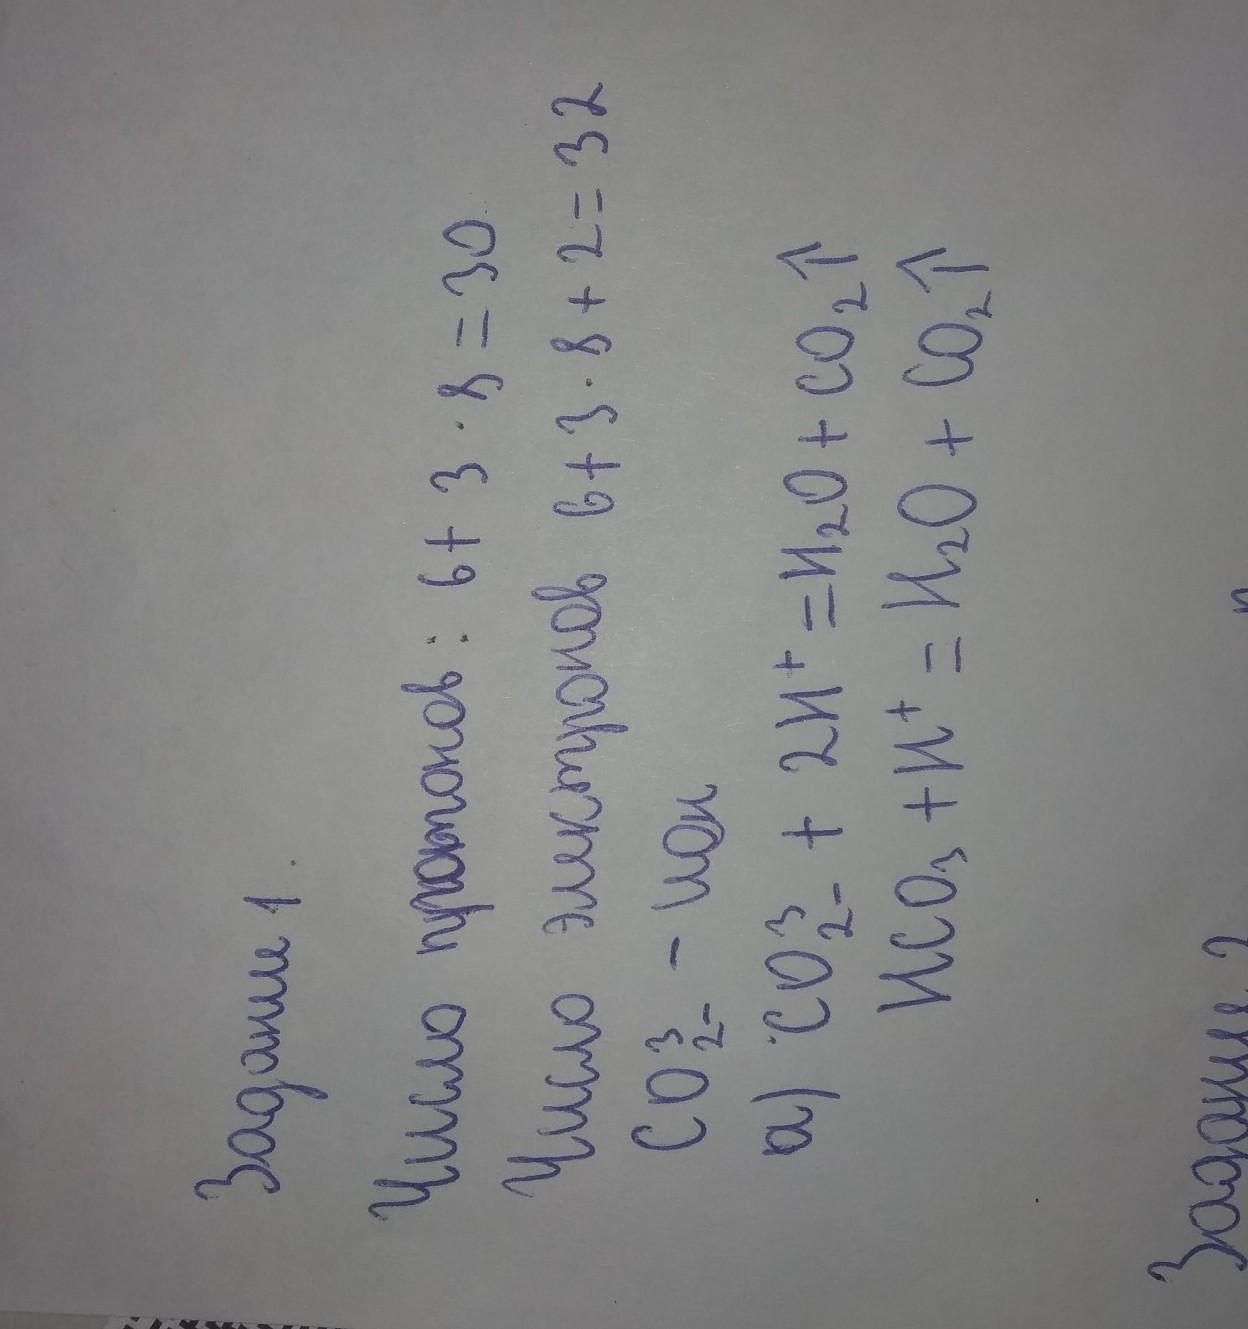 Задание 1.
Число протонов: 6 + 3 · 8 = 30
Число электронов 6 + 3 · 8 + 2 = 32
CO₂₋³ - ион
а) CO₂₋³ + 2H⁺ = H₂O + CO₂↑
HCO₃ + H⁺ = H₂O + CO₂↑
Задание 2